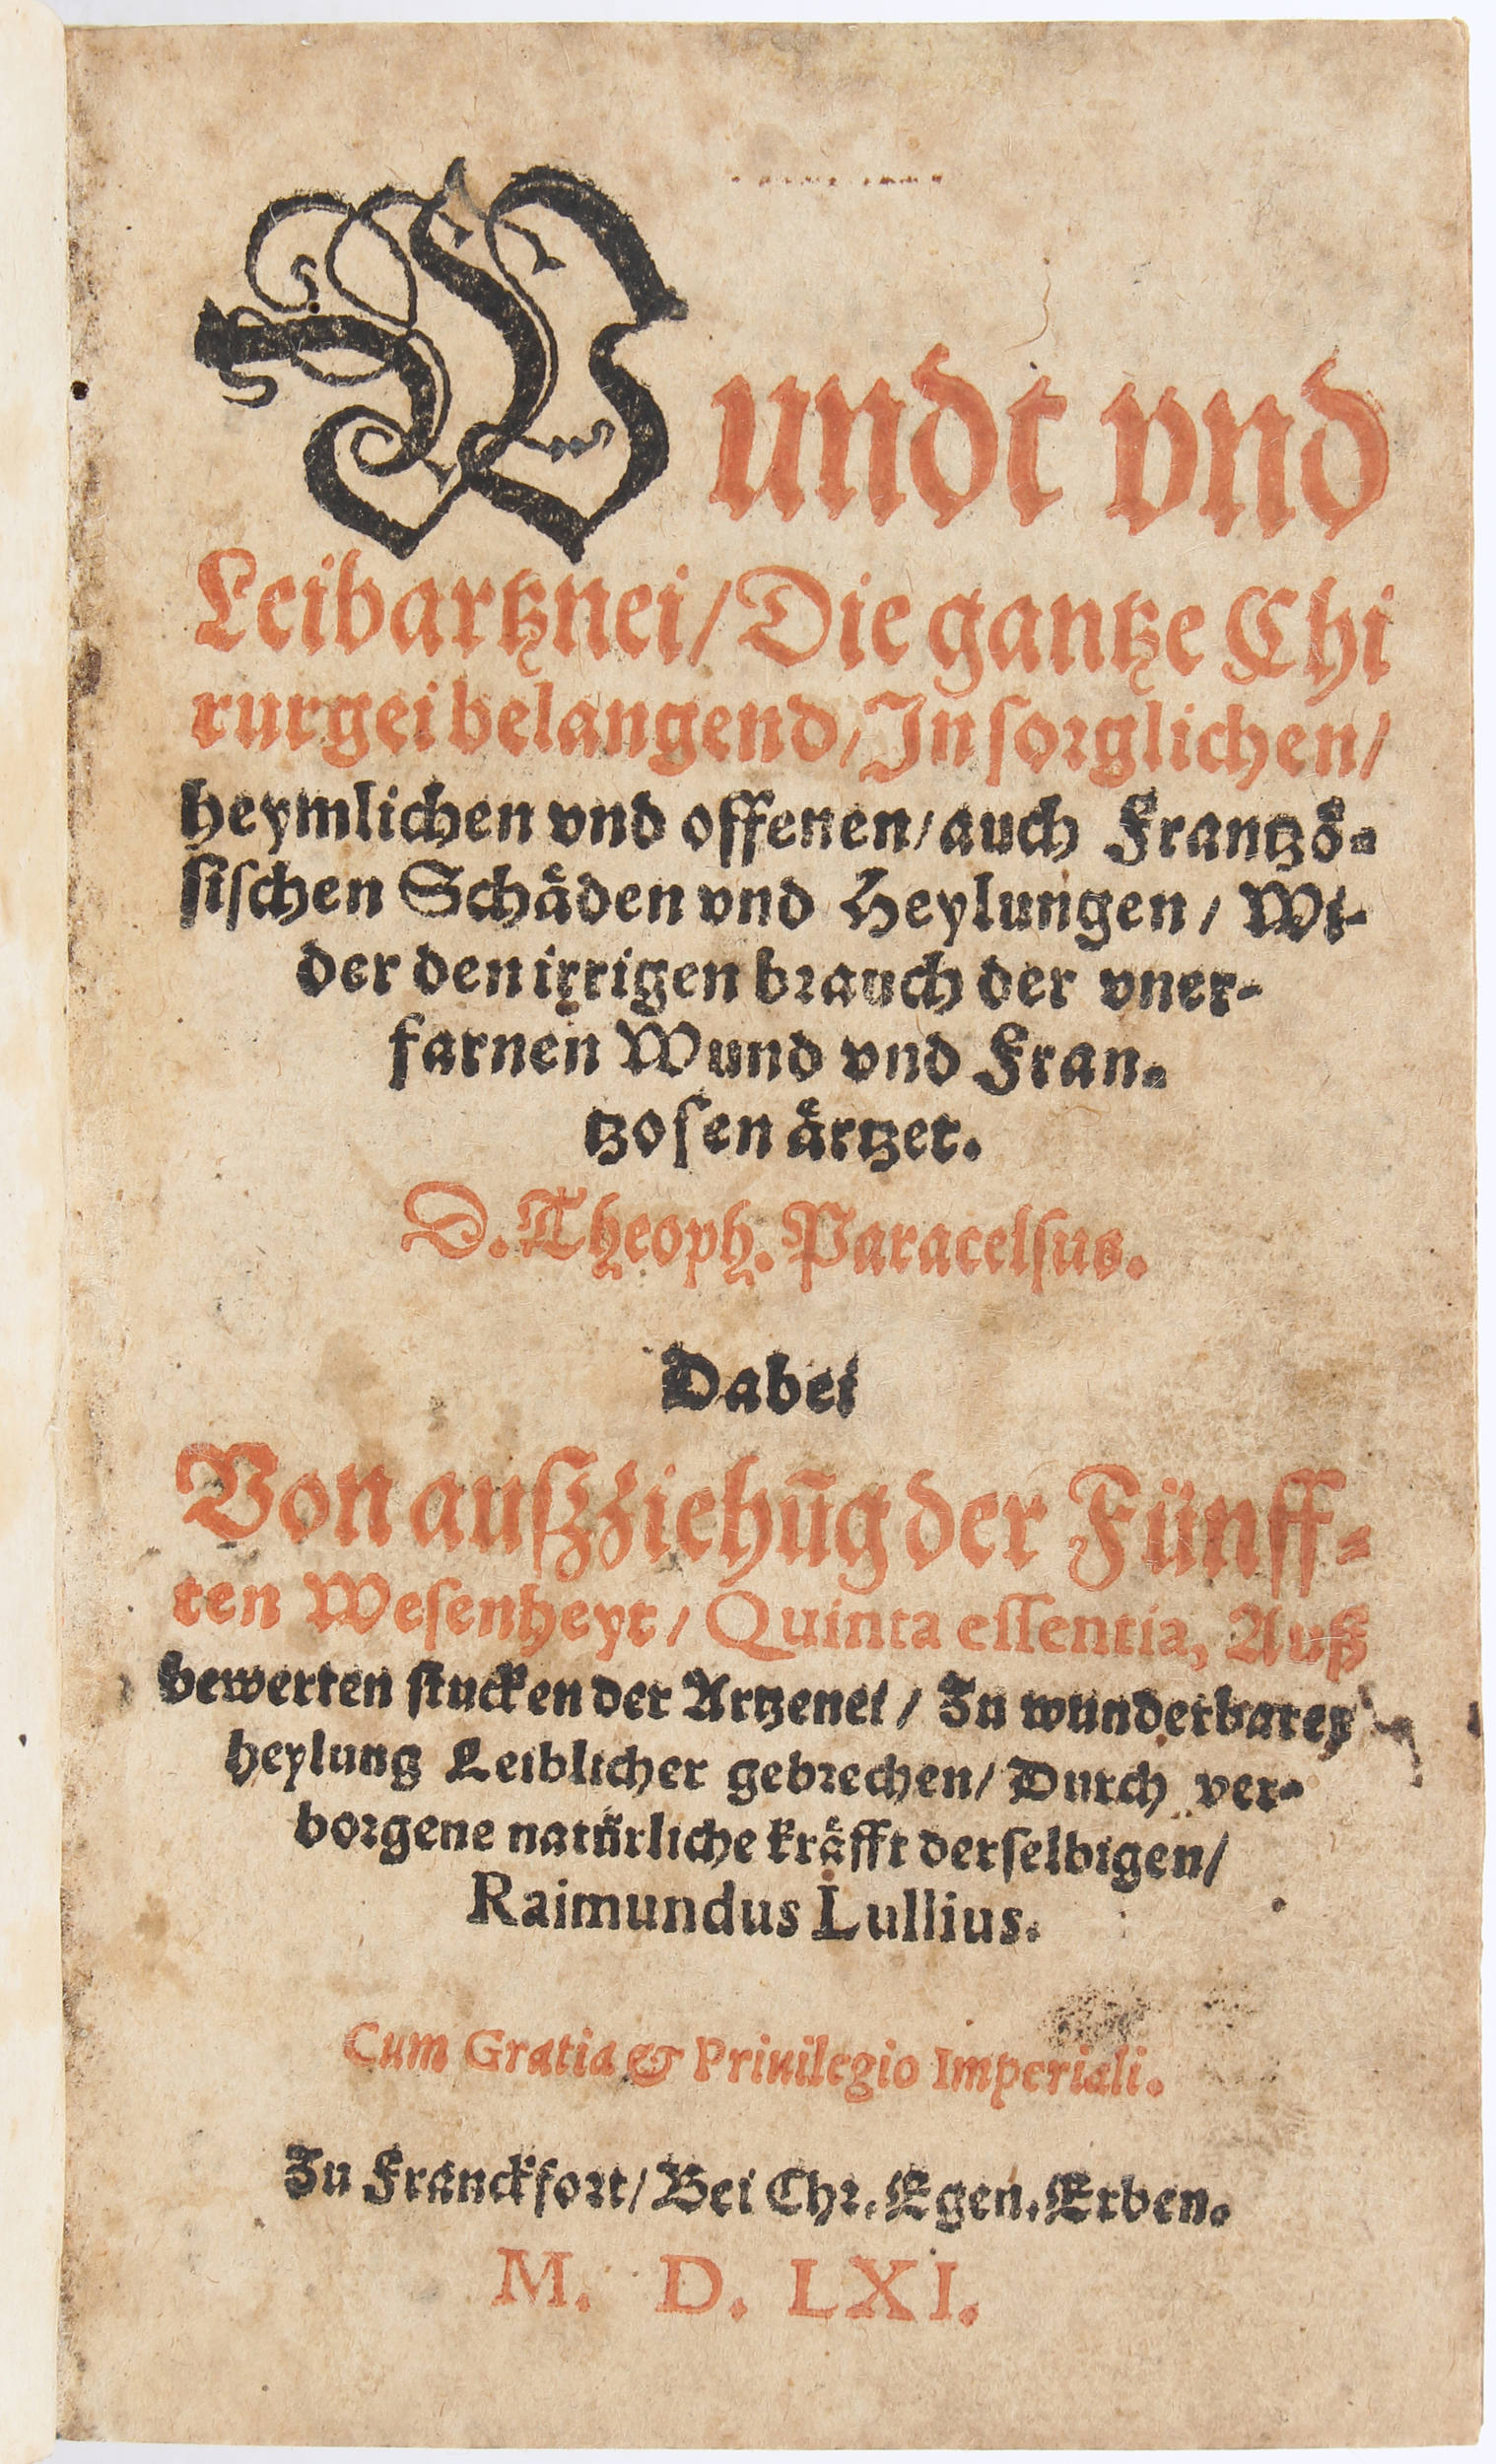 Wundt vnd
Leibartznei/ Die gantze Chi
rurgei belangend/ In sorglichen/
heymlichen vnd offenen/ auch Frantzoͤ-
sischen Schaͤden vnd Heylungen/ Wi-
der den irrigen brauch der vner-
farnen Wund vnd Fran-
tzosen aͤrtzet.
D. Theoph. Paracelsus.
Dabei
Von auszziehūg der Fünff-
ten Wesenheyt/ Quinta essentia, Auß
bewerten stucken der Artzenei/ Zu wunderbarer
heylung Leiblicher gebrechen/ Durch ver-
borgene natürliche kraͤfft derselbigen/
Raimundus Lullius.
Cum Gratia & Priuilegio Imperiali.
Zu Franckfort/ Bei Chr. Egen. Erben.
M. D. LXI.